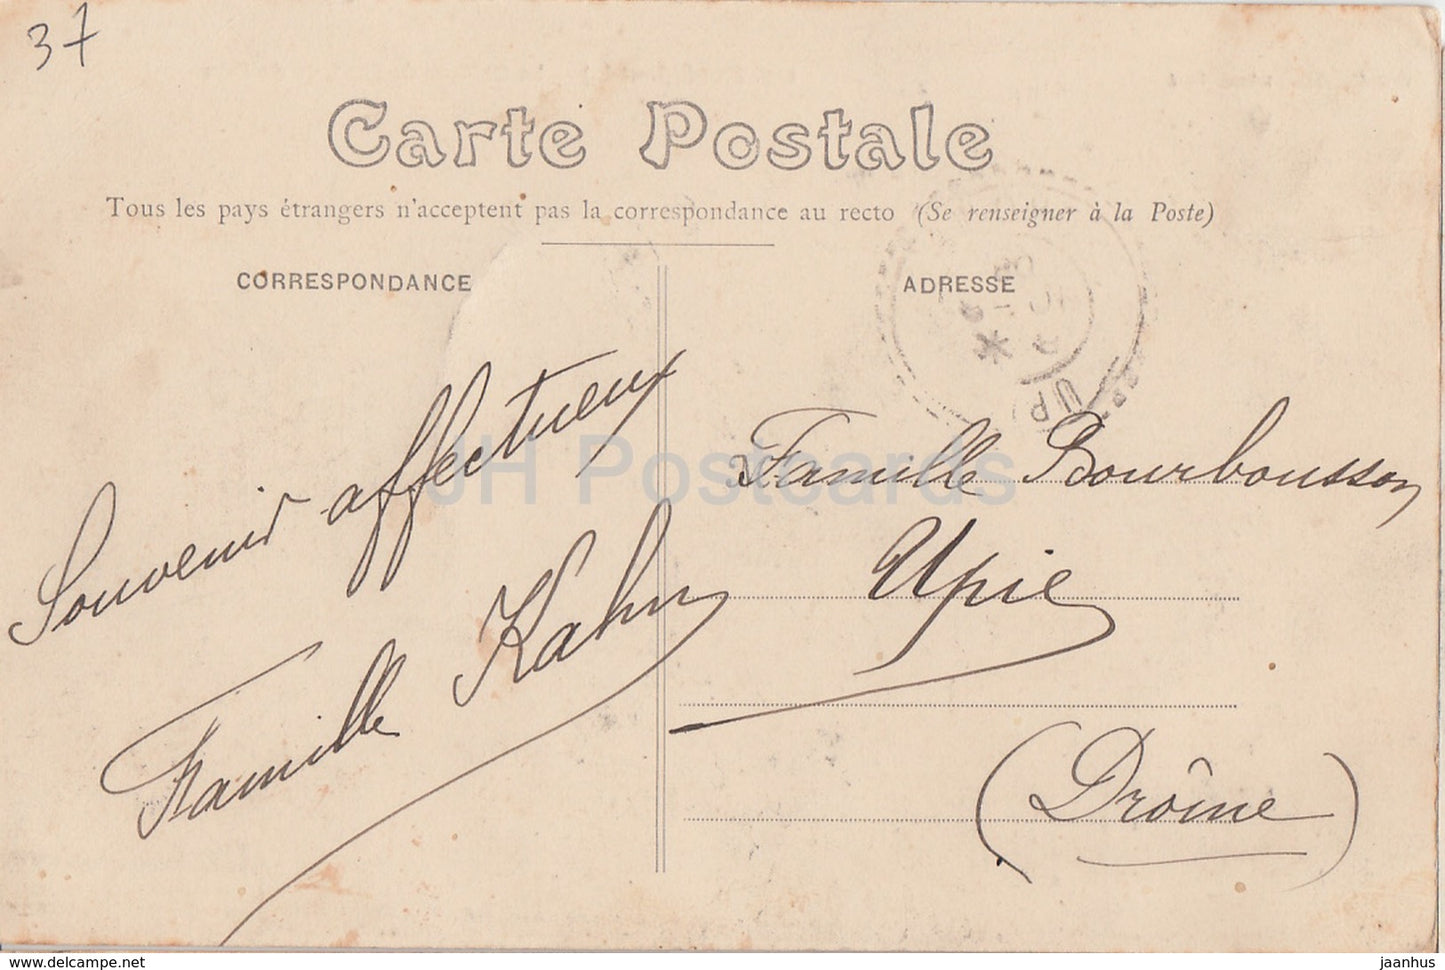 37
Carte Postale
Tous les pays étrangers n'acceptent pas la correspondance au recto (Se renseigner à la Poste)
CORRESPONDANCE
Souvenir affectueux
Famille Kahn
ADRESSE
UP
Famille Bourbousson
Upie
(Drôme)
JH Postcards
www.delcampe.net
jaanhus